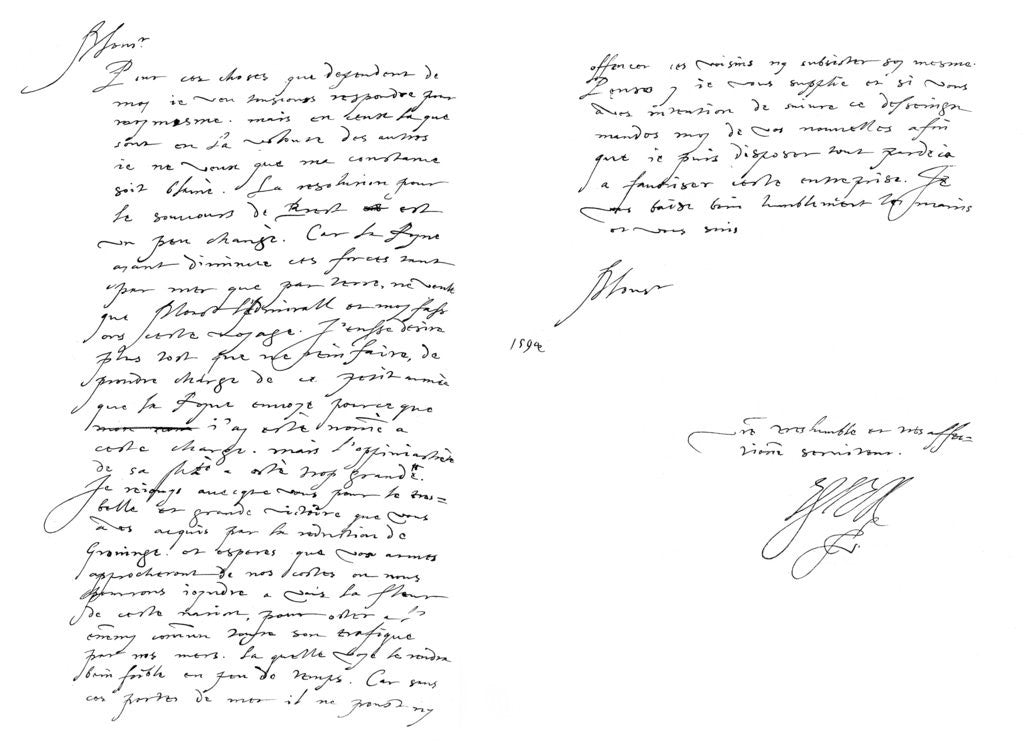 Monsr
Pour ces choses que dependent de
moy ie veu tousiours respondre pour
moymesme. mais en ceux la que
sont en la volonte des autres
ie ne veux que ma constance
soit blame. La resolution pour
le secours de Brest est
un peu changè. Car la Royne
ayant diminue ces forces tant
par mer que par terre, ne veult
que Monsr l'Admirall et moy fass
ons ceste voyage. J'eusse desire
plus tost que ne rien faire, de
prendre charge de ce petit armèe
que la Royne envoye pource que
i'ay estè nomè a
ceste charge. mais l'oppiniastrete
de sa Mte a estè trop grande.
Je reiouys avecque vous pour le tres=
belle et grande victoire que vous
aves acquis par la reduction de
Groninge. et esperes que vos armes
approcheront de nos costes ou nous
pourrons ioyndre a vous la fleur
de ceste nation, pour oster a l'
enemy comun toute son trafique
par nos mers. La quelle voye le rendra
bien foible en peu de temps. Car sans
ces portes de mer il ne peust ny
offencer ces voisins ny subsister soy mesme.
Penses y ie vous supplie et si vous
aves intention de suivre ce desseingn
mandes moy de vos nouvelles afin
que ie puis disposer tout pardeca
a favoriser ceste entreprise. Je
vous baise bien humblement les mains
et vous suis
Monsr
1594
vre treshumble et tresaffec=
tionè serviteur.